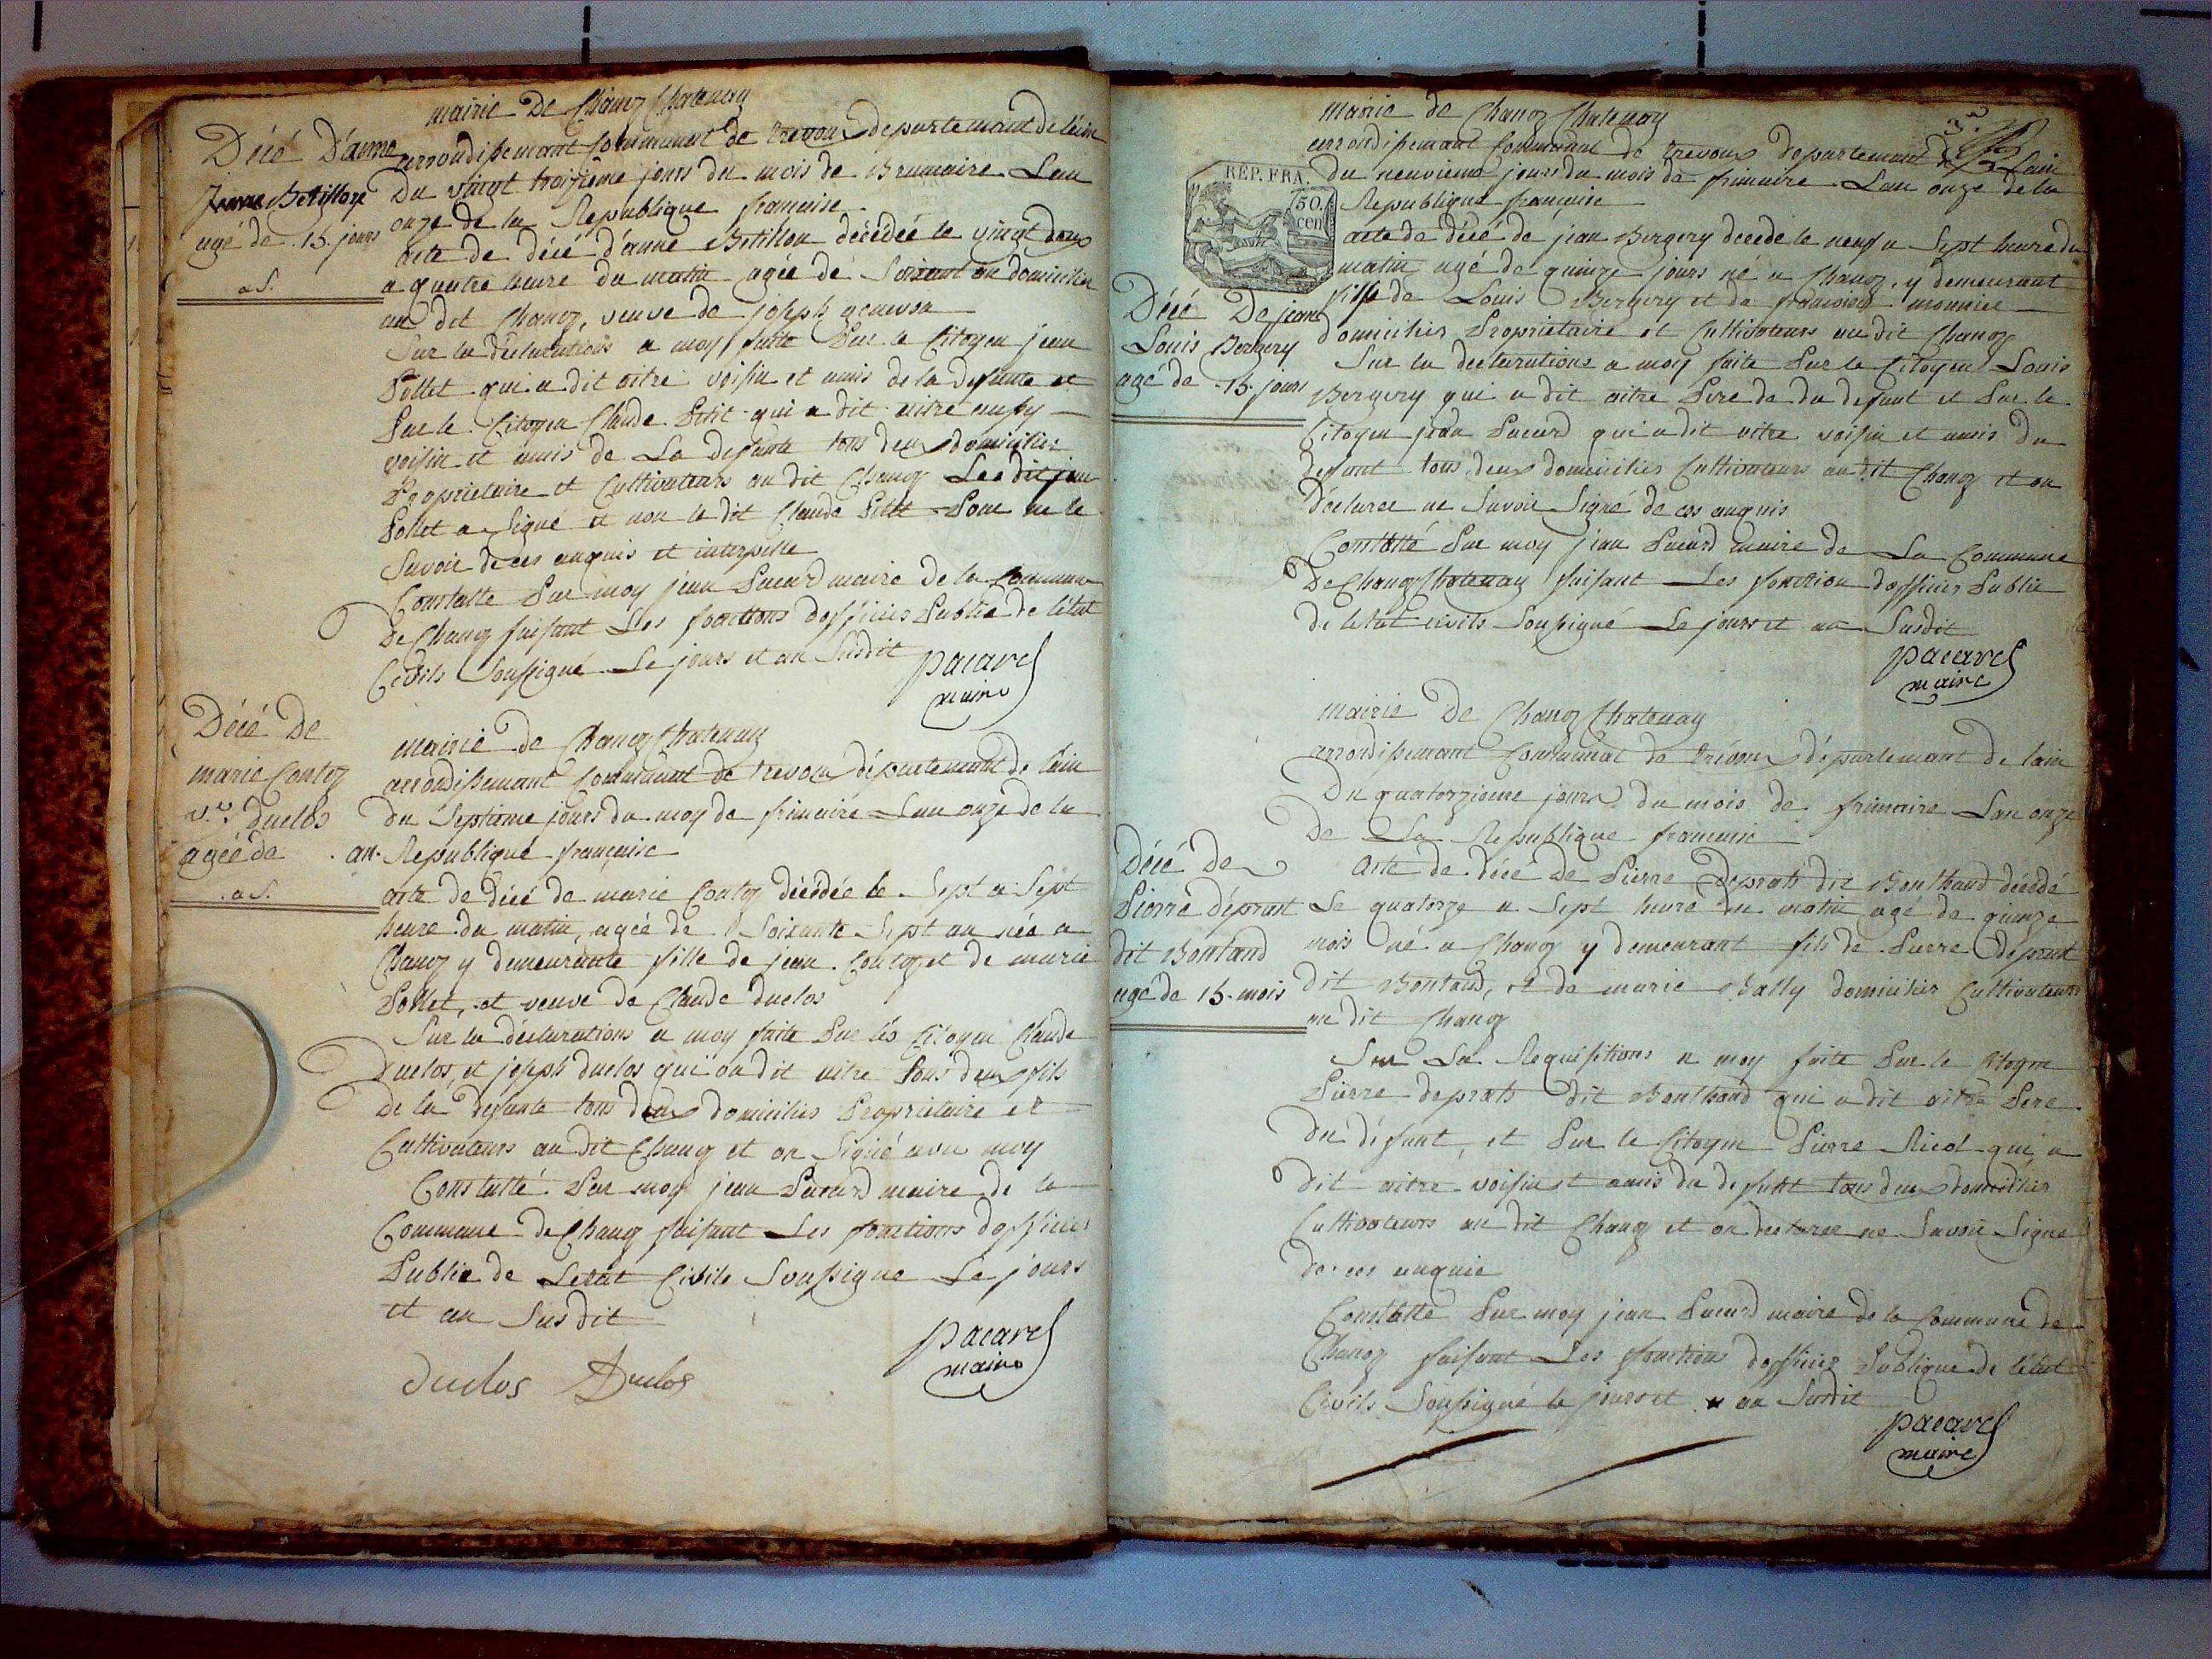 mairie De Chanoz Chatenay
Décé D'anne
Betillon
agé de 15. jours
a S.
arrondissemant Communal de trevoux departemant de lain
Du vingt troizieme jours du mois de Brumaire Lan
onze de la Republique francaise
acte de décé d'anne Betillon décédée le vingt deux
a quatre heure du matin agée de Soixant an domicilier
au dit Chanoz, veuve de joseph
Sur la déclarations a moy faitte Par le Citoyen jean
Pollet qui a dit aitre voisin et amis de la defunte et
Par le Citoyen Claude Petit qui a dit aitre aussy
voisin et amis de La defunte tous deux domicilier
Proprietaire et Cultivateurs au dit Chanoz Le dit jean
Pollet a Signé et non le dit Claude Petit Pour ne le
Savoir de ces anquis et interpelle
Constatte Par moy jean Pacard maire de la Commune
De Chanoz faisant Les fonctions dofficier Publie de létat
Civils Soussigné Le jours et an Susdit
pacard
maire
Décé De
marie Contoz
v.ve duclos
agée de . an.
. a S.
mairie de Chanoz Chatenay
arrondissemant Communal de trevoux départemant de lain
du Septieme jours du moy de frimaire Lan onze de la
Republique française
acte de Décé de marie Contoz décédée le Sept a Sept
heure du matin, agée de Soixante Sept an née a
Chanoz y demeurante fille de jean Contoz et de marie
Pollet, et veuve de Claude duclos
Sur la déclarations a moy faite Par les Citoyen Claude
Duclos, et joseph duclos qui on dit aitre tous deux fils
de la defunte tous deux domicilies Proprietaire et
Cultivateurs au dit Chanoz et on Signé avec moy
Constatté Par moy jean Pacard maire de la
Commune de Chanoz faisant Les fonctions dofficier
Publie de Letat Civile Soussigne Le jours
et an Sus dit
pacard
maire
duclos Duclos
3.e
mairie de Chanoz Chatenay
arrondissemant Communal de trevoux departemant de Lain
du neuvieme jours du mois de frimaire Lan onze de la
Republique française
RÉP. FRA.
50.
cen
acte de décé de jean Bergery decede le neuf a Sept heure du
matin agé de quinze jours né a Chanoz, y demeurant
fils de Louis Bergery et de francoise monnier
Décé De jean
Louis Bergery
agé de 15. jours
domicilies Proprietaire et Cultivateurs au dit Chanoz
Sur la declarations a moy faite Par le Citoyen Louis
Bergery qui a dit aitre Pere de du defunt et Par le
Citoyen jean Pacard qui a dit aitre voisin et amis du
defunt tous deux domicilies Cultivateurs au dit Chanoz et on
Déclaree ne Savoir Signé de ces anquis
Constatté Par moy jean Pacard maire de La Commune
De Chanoz Chatenay faisant Les fonction dofficier Publie
de letat civils Soussigné Le jours et an Susdit
pacard
maire
mairie De Chanoz Chatenay
arrondissemant Communal de trévoux départemant de lain
Du quatorzieme jours du mois de frimaire Lan onze
De La Republique francaise
Décé De
Pierre déprast
dit Bontand
agé de 15. mois
Acte de décé De Pierre Deprats dit Bonthand décédé
Le quatorze a Sept heure du matin agé de quinze
mois né a Chanoz y demeurant fils de Pierre deprast
dit Bontaud, et de marie Bally domicilies Cultivateurs
au dit Chanoz
Sur La Requisitions a moy faite Par le Citoyen
Pierre deprats dit Bonthand qui a dit aitre Pere
du défunt, et Par le Citoyen Pierre Nicol qui a
dit aitre voisin et amis du defunt tous deux domicilies
Cultivateurs au dit Chanoz et on declaree ne Savoir Signe
de ces anquis
Constatte Par moy jean Pacard maire de la Commune de
Chanoz faisant Les fonctions dofficier Publique de létat
Civils Soussigné le jours et an Susdit
pacard
maire